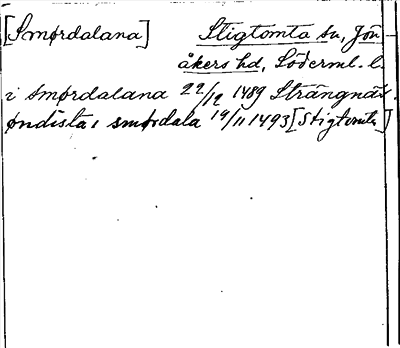 [Smørdalana] Stigtomta sn, Jön
åkers hd, Söderml. l.
i smørdalana 22/12 1489 Strängnäs.
øndista i smørdala 19/11 1493 [Stigtomta]